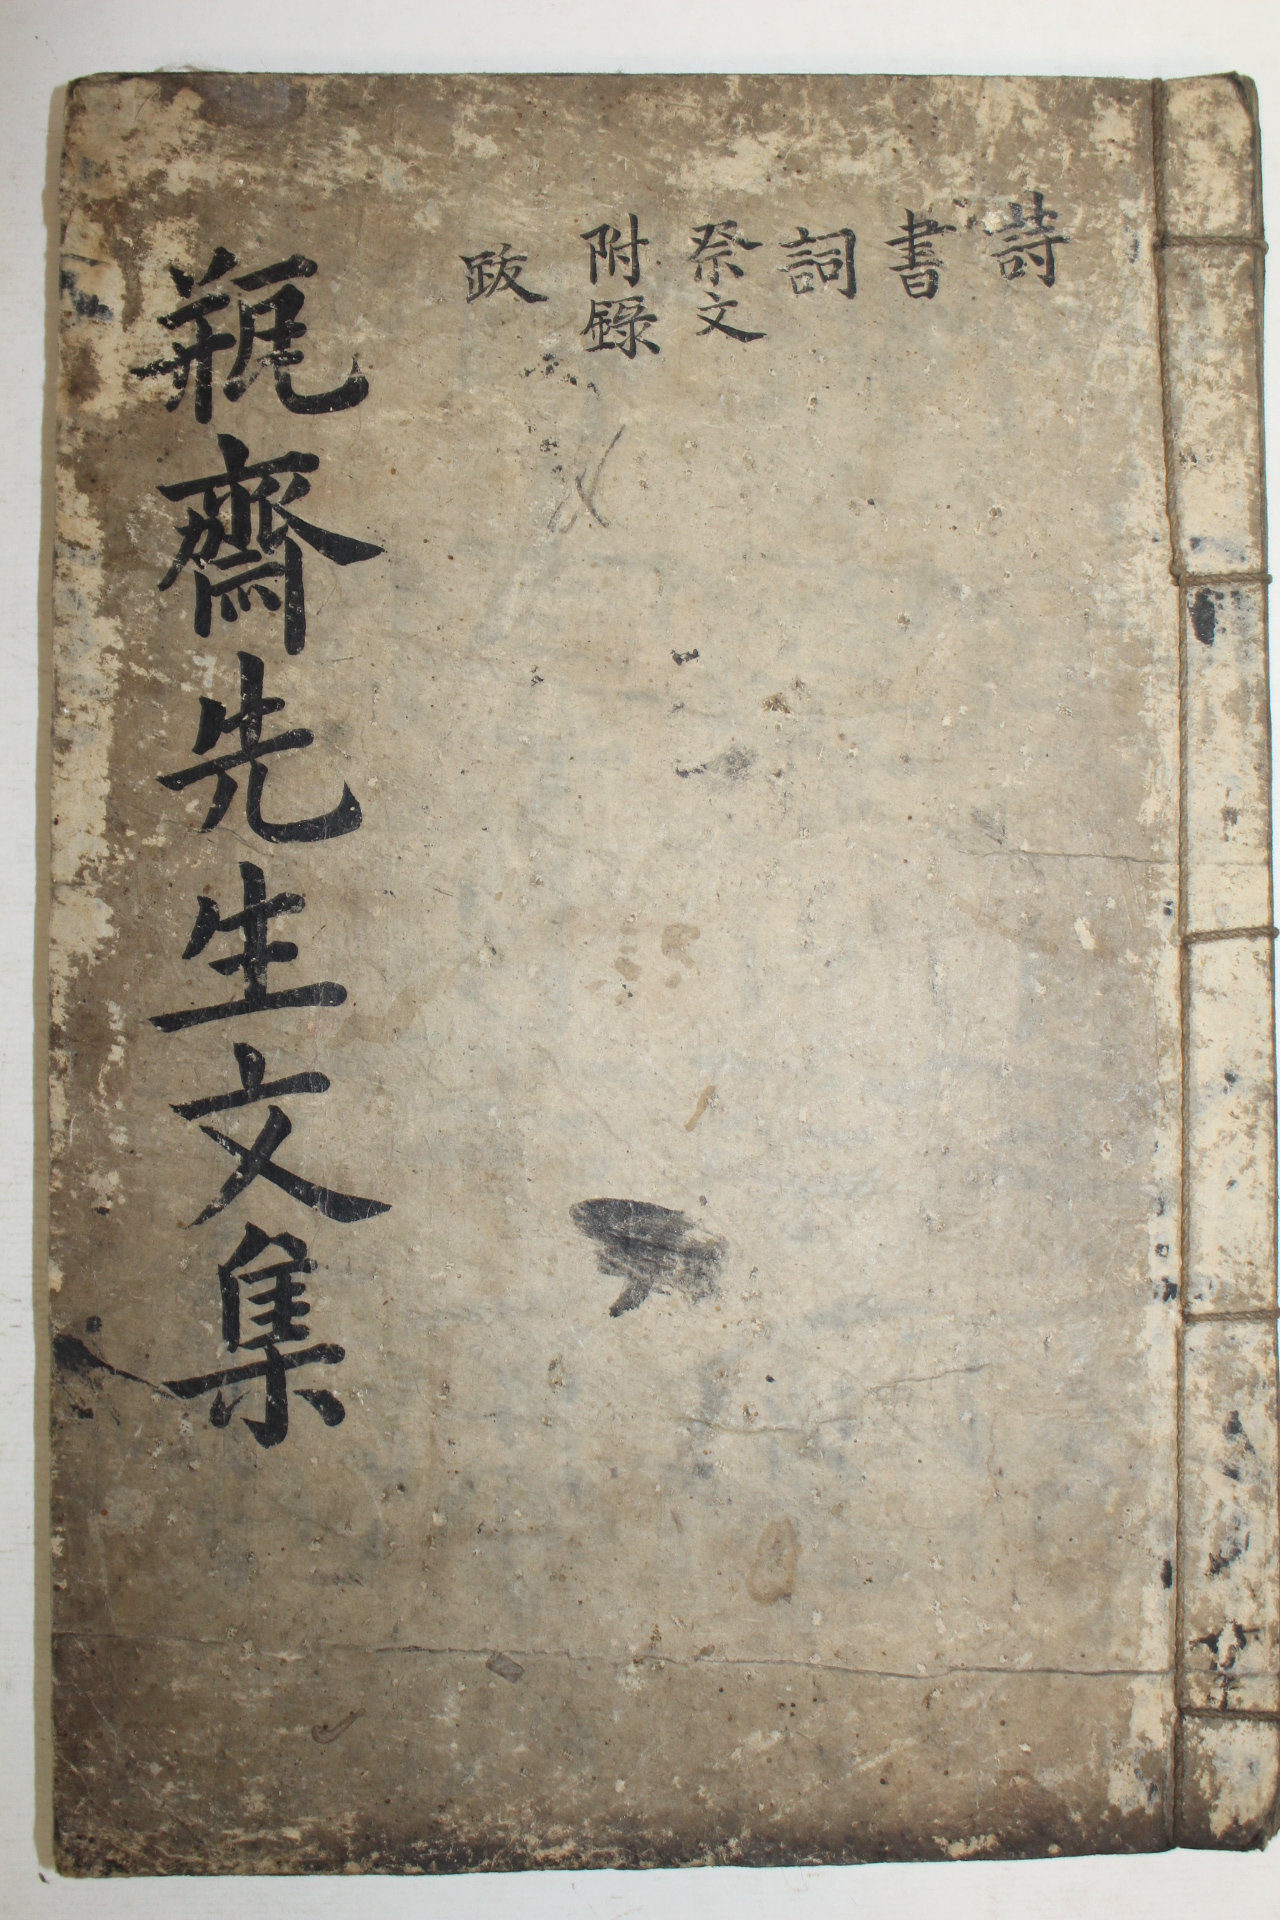 詩
書
詞
祭文
附錄
跋
甁齋先生文集